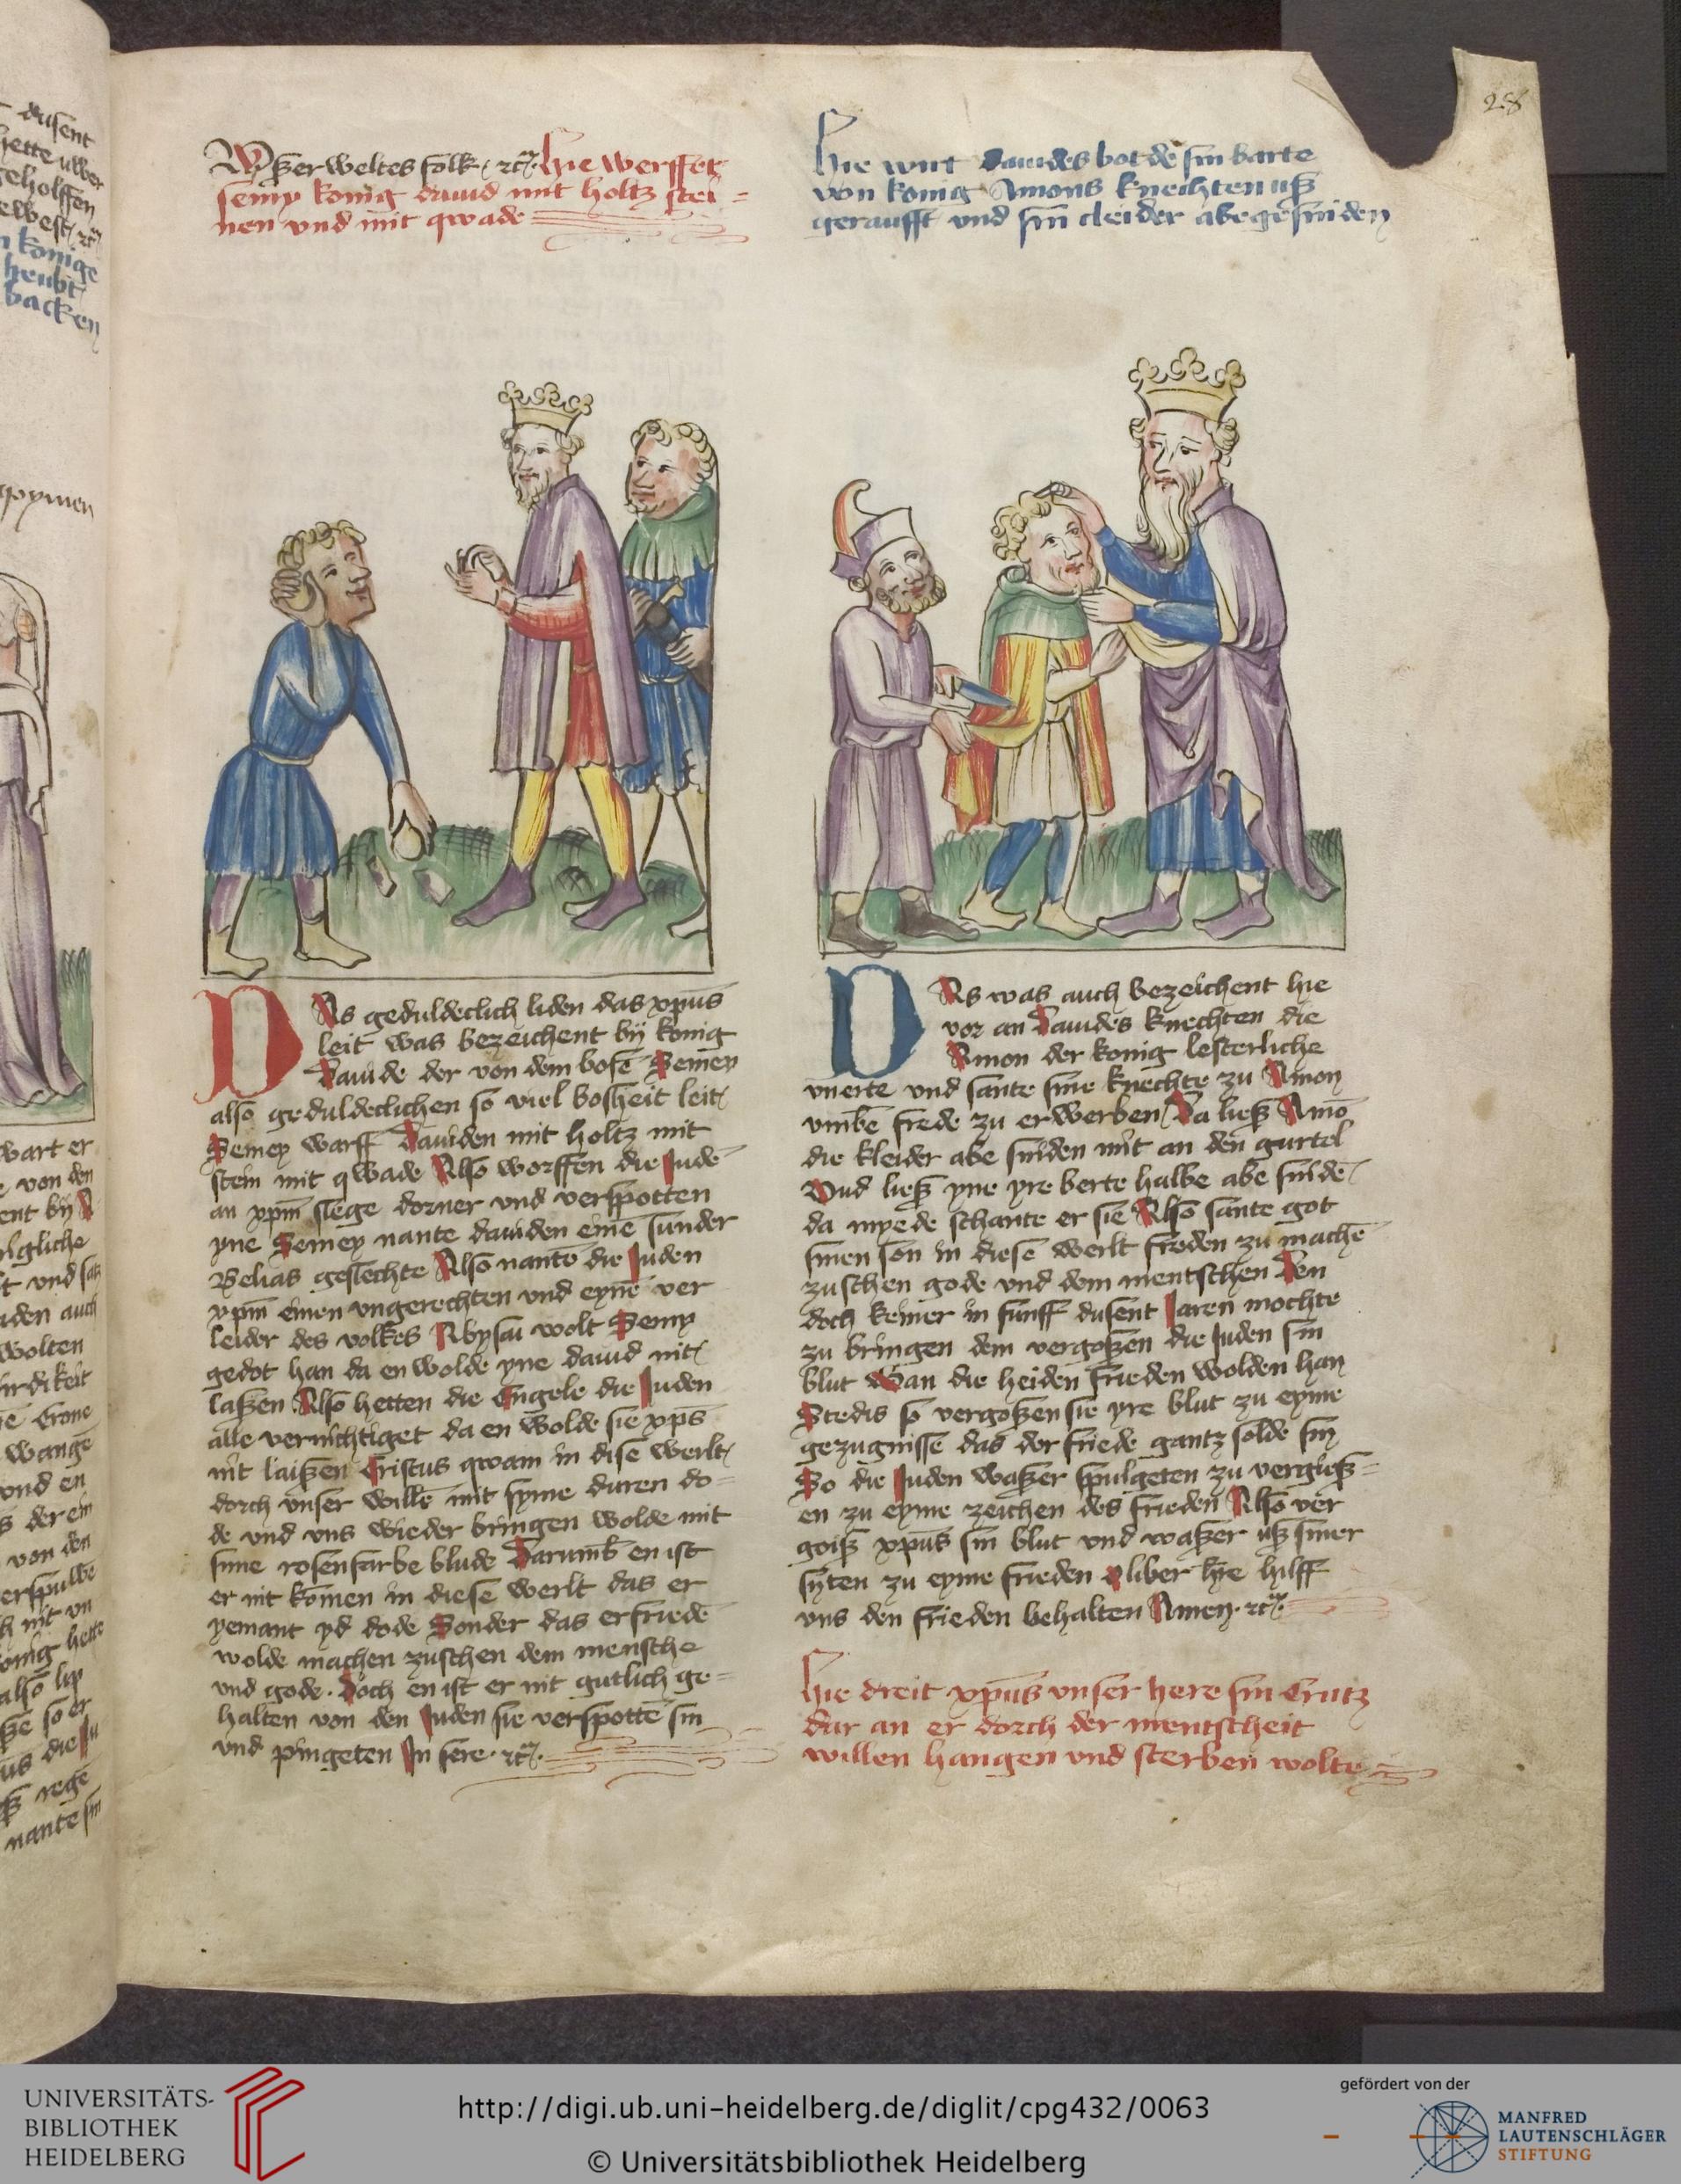 dusent
hette uber
geholffen
gewest / rc~
n konige
heubt
backen
wart er
e von den
ent bij
und
iden auch
wolten
irdikeit
Crone
wange
und en
der ein
von den
h nit vn
konig hette
also lip
so er
us die Ju
rege
nante sin
Vßer weltes folk / rc~ Hie werffet
semy konig dauid mit holtz stei=
nen vnd mit qwade
As geduldeclich liden das xp̄us
leit was bezeichent bij konig
Dauide der von dem bose Semey
also geduldeclichen so viel bosheit leit /
Semey warff Dauiden mit holtz mit
stein mit qwade Also worffen die Jude
an xp̄m slege dorner vnd verspotten
yne Semey nante dauiden eine sunder
Belias geslechte Also nante die Juden
xp̄m einen vngerechten vnd eyne ver
leider des volkes Abysai wolt Semy
gedot han da en wolde yne dauid nit /
laßen Also hetten die Engele die Juden
alle vernichtiget da en wolde sie xp̄s
nit laißen Cristus qwam in dise werlt /
dorch vnser wille mit syme duren do=
de vnd vns wieder bringen wolde mit
sime rosenfarbe blude Darumb en ist
er nit komen in diese werlt das er
yemant yd dode Sonder das er friede
wolde machen zuschen dem mensche
vnd gode · Doch en ist er nit gutlich ge=
halten von den Juden sie verspotte sin
vnd pingeten In sere · rc~ ·
28
Hie wirt Dauides bot de sin barte
von konig Amons knechten uß
geraufft vnd sin cleider abegesniden
D As was auch bezeichent hie
vor an Dauides knechten die
Amon der konig lesterliche
vnerte vnd sante sine knechte zu Amon
vmbe frede zu erwerben / Da ließ Amo
die kleider abe sniden mit an den gurtel
Vnd ließ yne yre berte halbe abe snide /
da myede schante er sie Also sante got
sinen son in diese werlt freden zu mache
zuschen gode vnd dem mentschen Den
doch keiner in funff dusent Jaren mochte
zu bringen dem vergoßen die Juden sin
blut Wan die heiden frieden wolden han
Stedis so vergoßen sie yre blut zu eyme
gezugnisse das der friede gantz solde sin
So die Juden waßer spulgeten zu vergieß=
en zu eyme zeichen des frieden Also ver
goiß xp̄us sin blut vnd waßer uß siner
syten zu eyme frieden O liber h̄re hilff
vns den frieden behalten Amen · rc~ ·
Hie dreit xp̄us vnser here sin Crutz
dar an er dorch der mentscheit
willen hangen vnd sterben wolte
UNIVERSITÄTS-
BIBLIOTHEK
HEIDELBERG
http://digi.ub.uni-heidelberg.de/diglit/cpg432/0063
© Universitätsbibliothek Heidelberg
gefördert von der
MANFRED
LAUTENSCHLÄGER
STIFTUNG